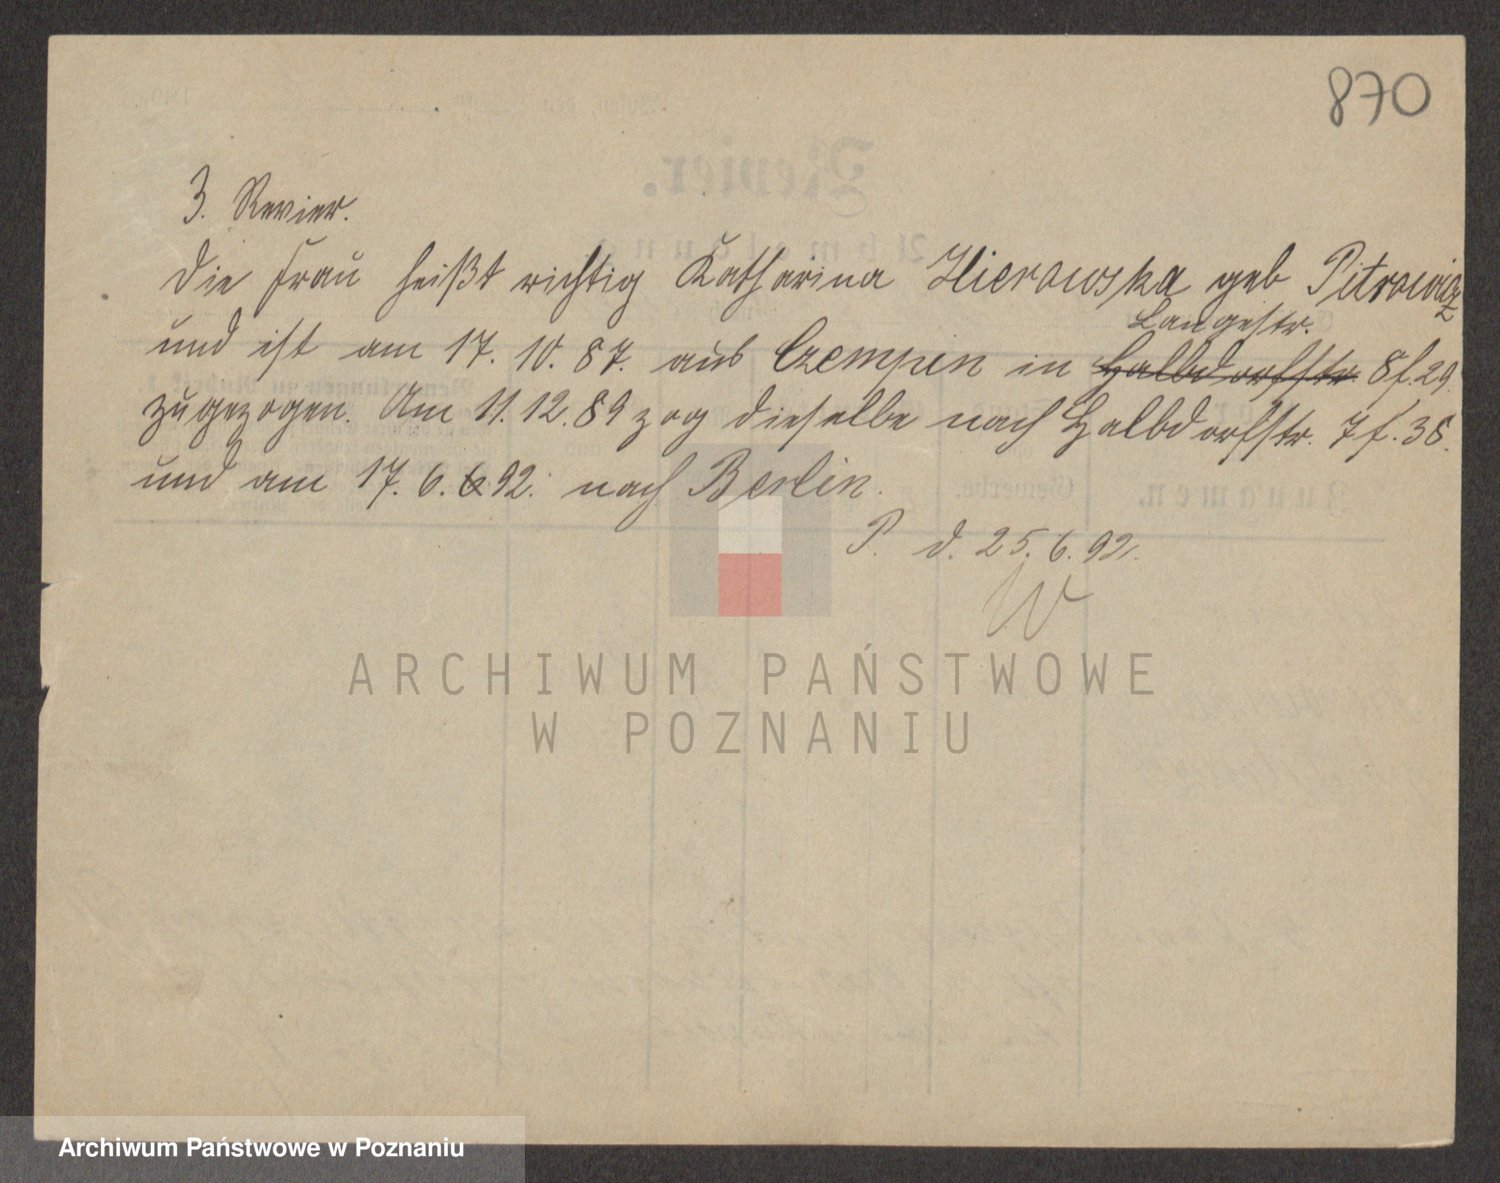 870
3. Revier.
Die Frau heißt richtig Katharina Hierowska geb Pitrowicz
und ist am 17. 10. 87. aus Czempin in Halbdorfstr Langestr. 8 f. 29.
zugezogen. Am 11. 12. 89 zog dieselbe nach Halbdorfstr. 7 f. 38.
und am 17. 6. 92. nach Berlin.
P. d. 25. 6. 92.
W
Revier.
Abmeldung
Zunamen.
Gewerbe.
ARCHIWUM PAŃSTWOWE
W POZNANIU
Archiwum Państwowe w Poznaniu